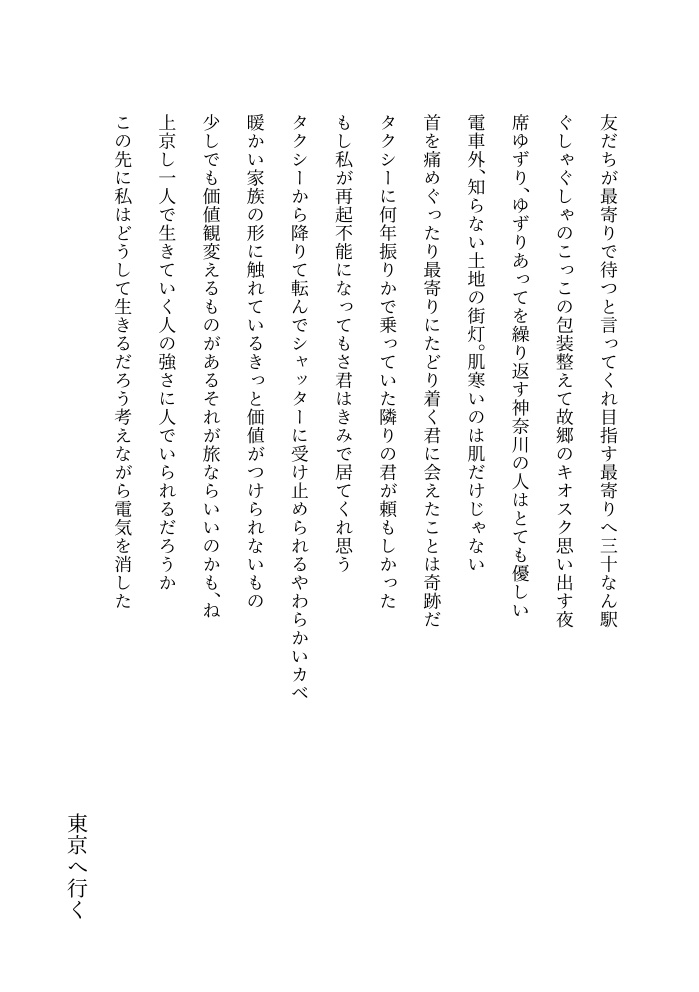 友だちが最寄りで待つと言ってくれ目指す最寄りへ三十なん駅
ぐしゃぐしゃのこっこの包装整えて故郷のキオスク思い出す夜
席ゆずり、ゆずりあってを繰り返す神奈川の人はとても優しい
電車外、知らない土地の街灯。肌寒いのは肌だけじゃない
首を痛めぐったり最寄りにたどり着く君に会えたことは奇跡だ
タクシーに何年振りかで乗っていた隣りの君が頼もしかった
もし私が再起不能になってもさ君はきみで居てくれ思う
タクシーから降りて転んでシャッターに受け止められるやわらかいカベ
暖かい家族の形に触れているきっと価値がつけられないもの
少しでも価値観変えるものがあるそれが旅ならいいのかも、ね
上京し一人で生きていく人の強さに人でいられるだろうか
この先に私はどうして生きるだろう考えながら電気を消した
東京へ行く